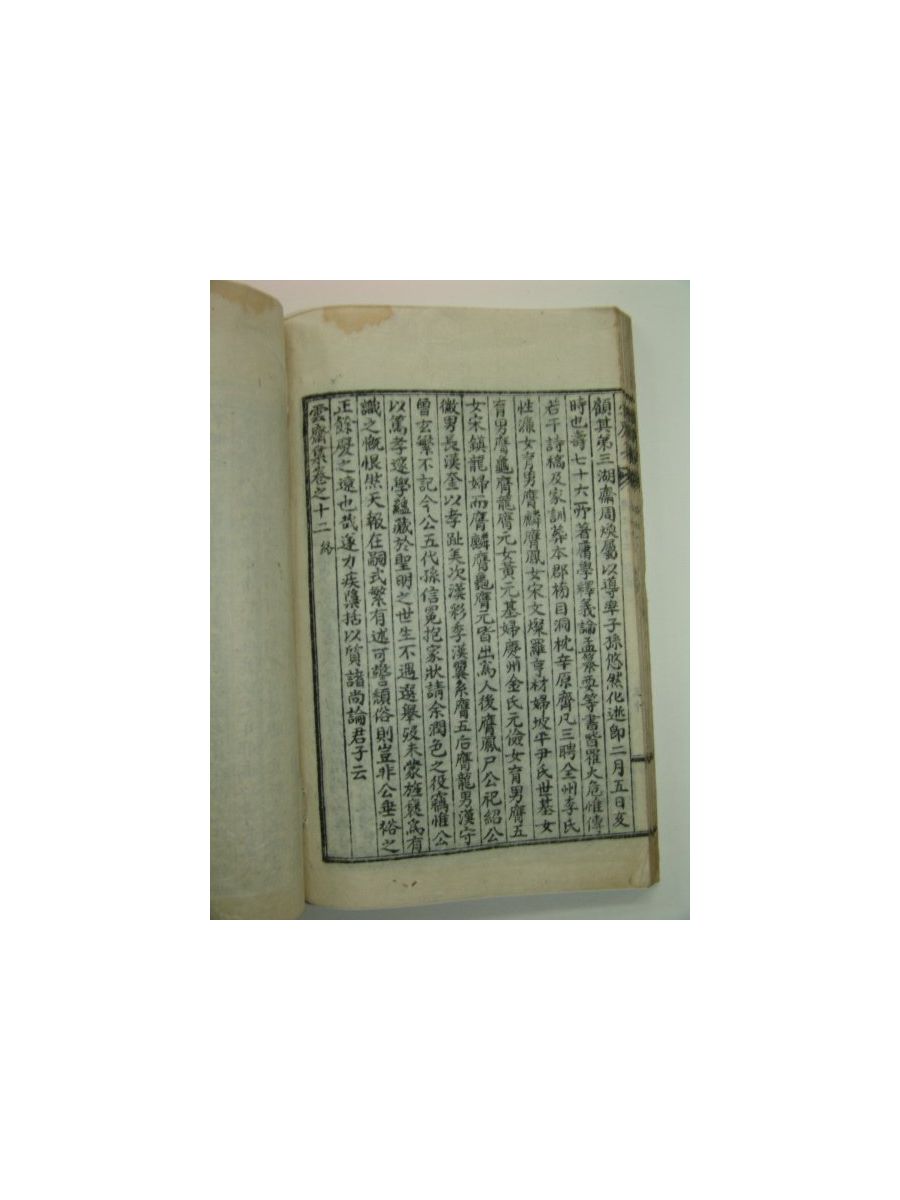 顧其弟三湖齋周煥屬以導率子孫悠然化逝卽二月五日亥
時也壽七十六所著庸學釋義論孟纂要等書皆罹火危惟傳
若干詩稿及家訓葬本郡栭目洞枕辛原齊凡三聘全州李氏
性濂女育男膺麟膺鳳女宋文燦羅亨材婦坡平尹氏世基女
育男膺龜膺龍膺元女黃元基婦慶州金氏元儉女育男膺五
女宋鎮龍婦而膺麟膺龜膺元皆出爲人後膺鳳尸公祀紹公
徽男長漢奎以孝趾美次漢彩季漢翼系膺五后膺龍男漢守
曾玄繁不記今公五代孫信冕抱家狀請余潤色之役竊惟公
以篤孝邃學蘊藏於聖明之世生不遇選擧歿未蒙旌褒爲有
識之慨恨然天報在嗣式繁有述可警頹俗則豈非公垂裕之
正餘慶之遠也哉遂力疾櫽括以質諸尚論君子云
雲齋集卷之十二 終